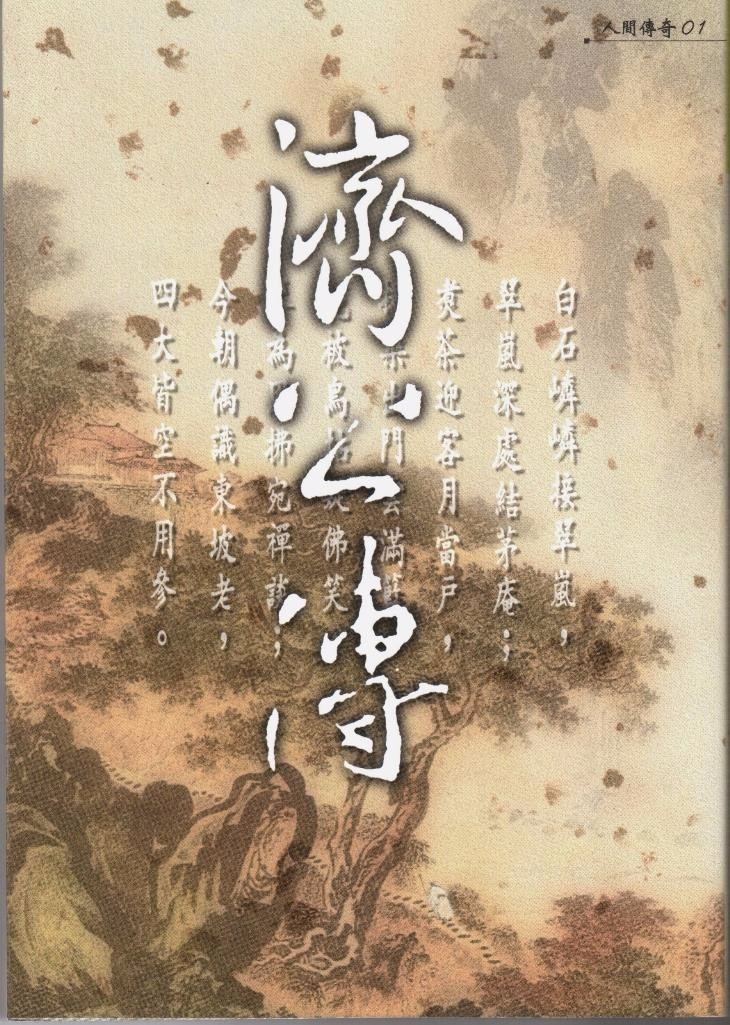 人間傳奇01
濟公傳
白石嶙嶙接翠嵐，
翠嵐深處結茅庵；
煑茶迎客月當戶，
出門雲滿
被鳥佛笑
為拂宛禪談；
今朝偶識東坡老，
四大皆空不用參。